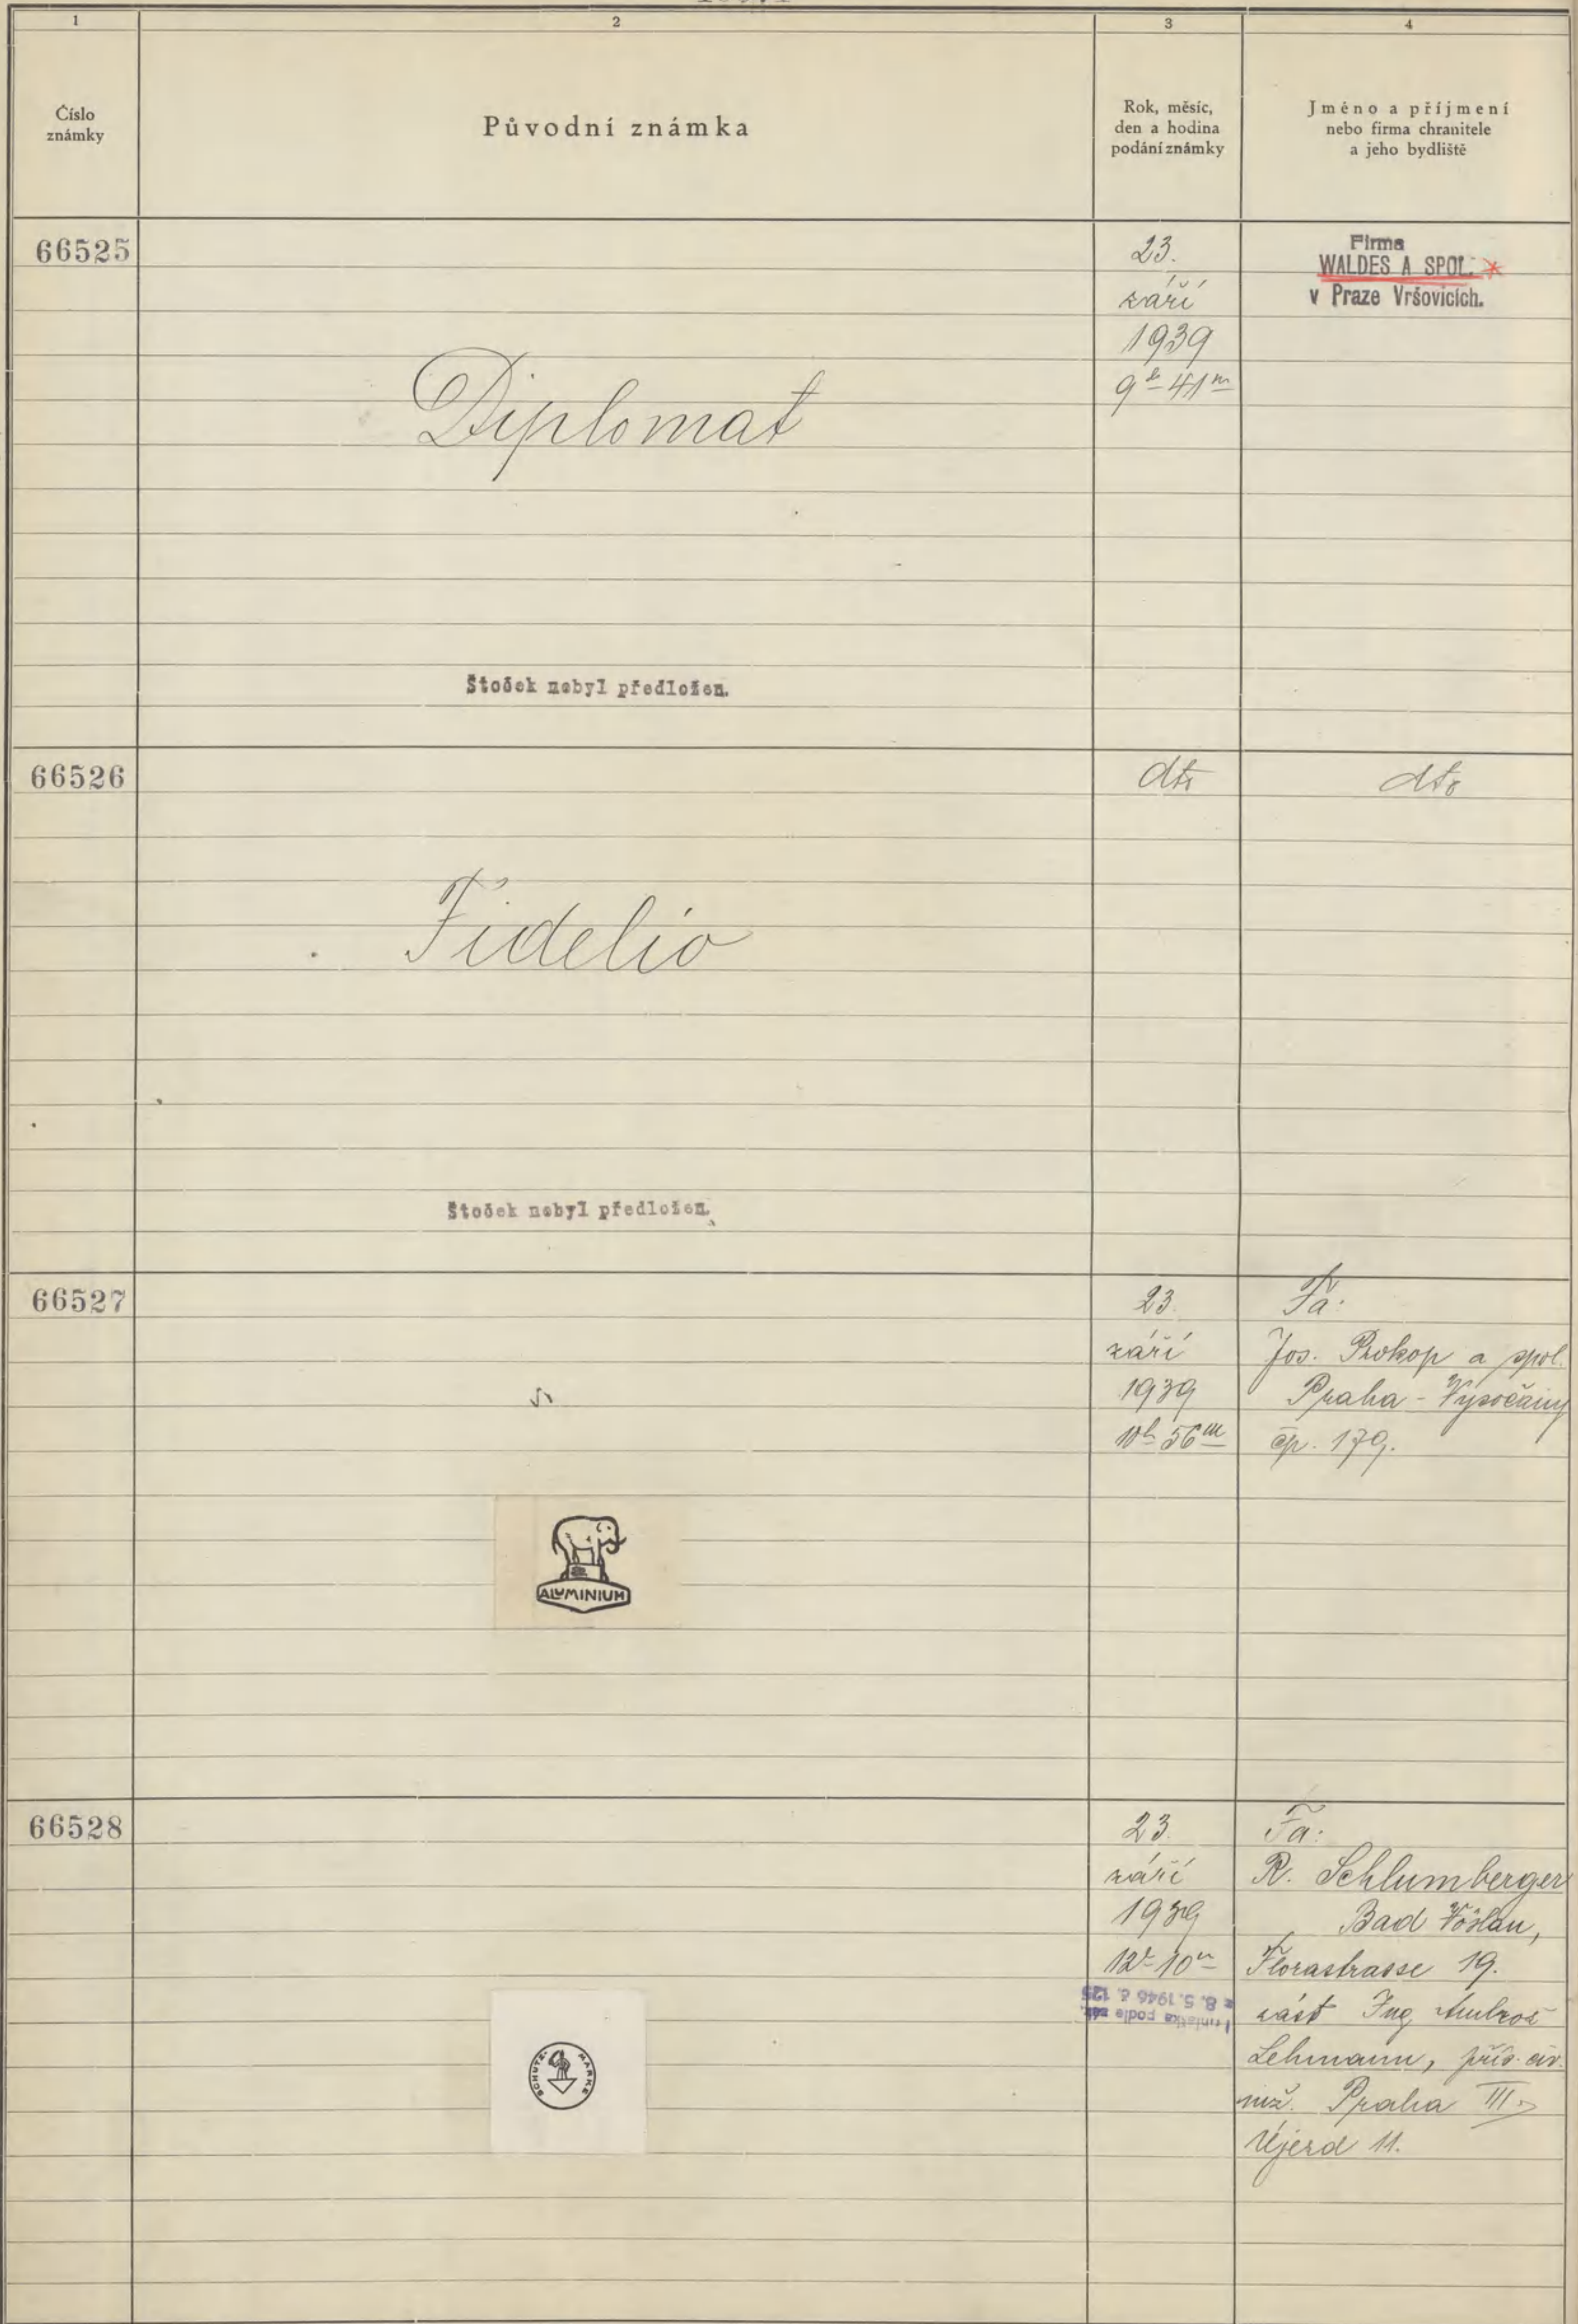 1
2
3
4
Číslo
známky
Původní známka
Rok, měsíc,
den a hodina
podání známky
Jméno a příjmení
nebo firma chranitele
a jeho bydliště
66525
Diplomat
Štoček nebyl předložen.
23.
září
1939
9h 41m
Firma
WALDES A SPOL.
v Praze Vršovicích.
66526
Fidelio
Štoček nebyl předložen.
dto
dto
66527
ALUMINIUM
23.
září
1939
10h 56m
Fa:
Jos. Prokop a spol.
Praha - Vysočany
čp. 179.
66528
SCHUTZ-MARKE
23.
září
1939
12h 10m
podle zák.
z 8. 5. 1946 č. 125
Fa:
R. Schlumberger
Bad Vöslau,
Florastrasse 19.
zást Ing Ambrož
Lehmann, přís. civ.
inž. Praha III.
Újezd 11.